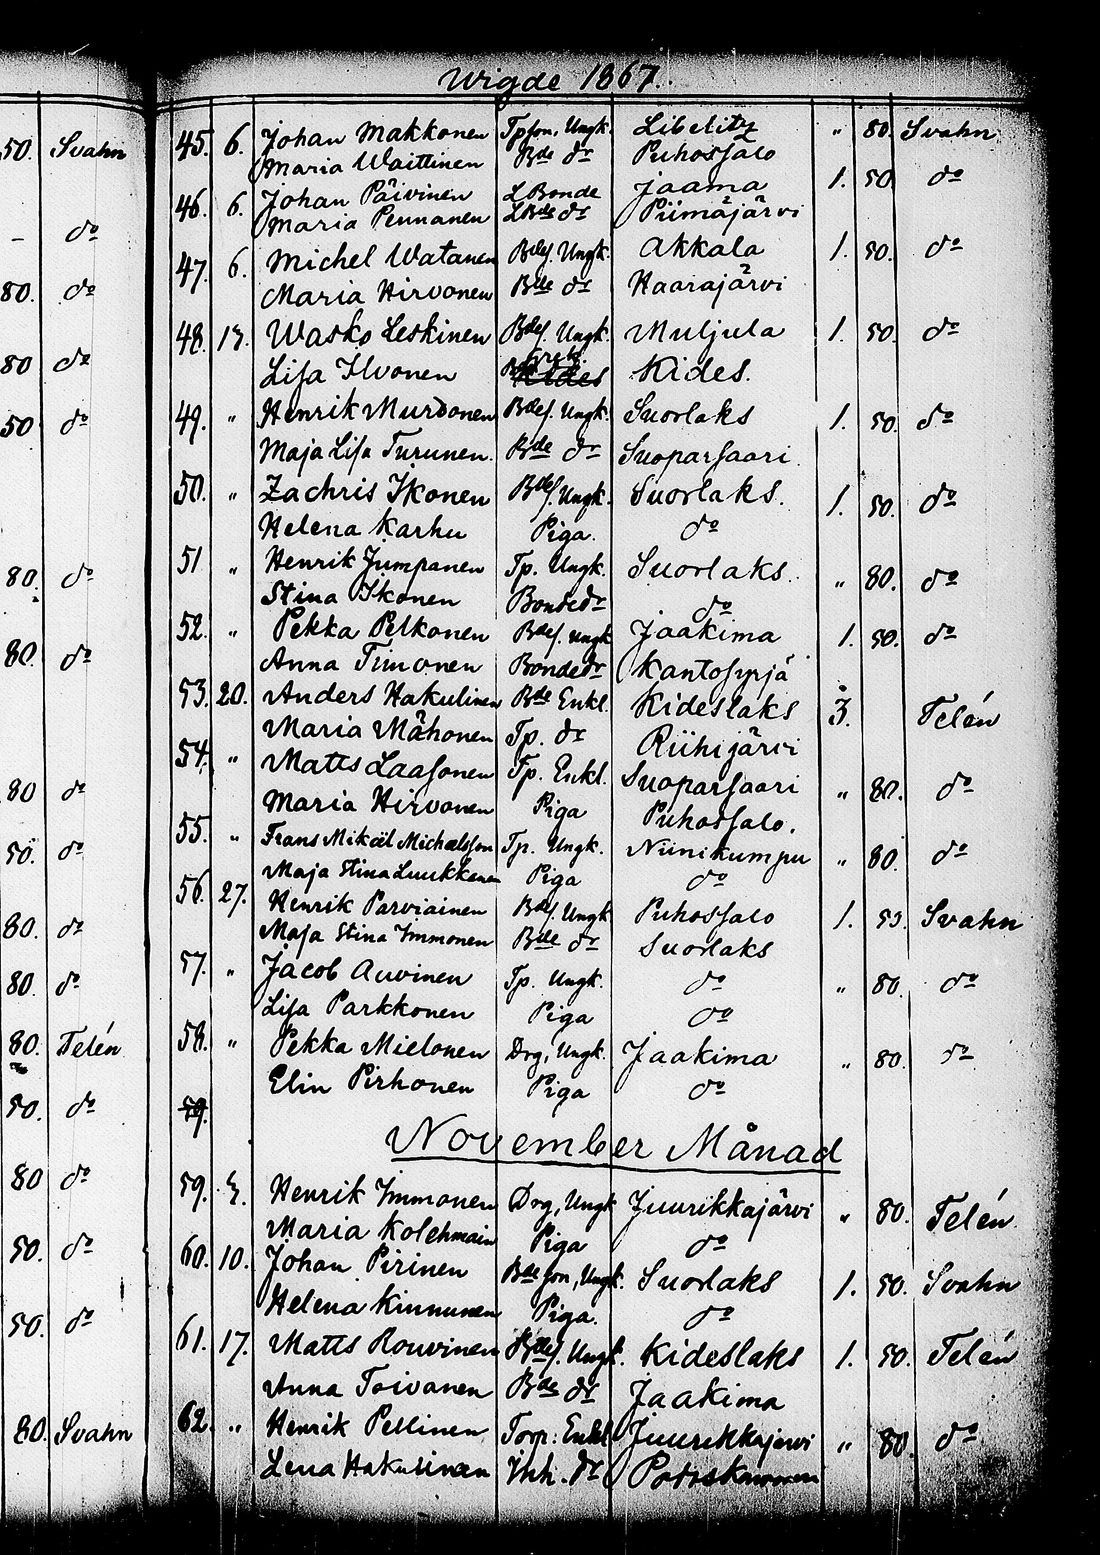 Wigde 1867.
50. Svahn
45. 6. Johan Makkonen Tpson, Ungk. Libelitz " 80. Svahn
Maria Waittinen Bde dr Puhossalo
46. 6. Johan Päivinen LBonde Jaama 1. 50. do
Maria Pennanen LBds dr Piimäjärvi
- do
47. 6. Michel Watanen Bdes. Ungk. Akkala 1. 50. do
80. do
Maria Hirvonen Bde dr Haarajärvi
48. 13. Wasko Leskinen Bdes. Ungk. Muljula 1. 50. do
80 do
Lisa Ilvonen Kides Kides.
50 do
49. " Henrik Murtonen Bdes. Ungk. Suorlaks 1. 50. do
Maja Lisa Turunen. Bde dr Suoparsaari
50. " Zachris Ikonen Bdes. Ungk. Suorlaks. 1. 50. do
Helena Karhu Piga. do
80. do
51 " Henrik Jumpanen Tp. Ungk. Suorlaks. " 80. do
Stina Ikonen Bondedr do
80. do
52. " Pekka Pelkonen Bdes. Ungk Jaakima 1. 50. do
Anna Timonen Bondedr Kantosyrjä
53. 20. Anders Hakulinen Bde Enkl. Kideslaks 3. Telén
Maria Mähonen Tp. dr Riihijärvi
80 do
54. " Matts Laasonen Tp. Enkl. Suoparsaari " 80. do
Maria Hirvonen Piga Puhossalo.
50. do
55. " Frans Mikäel Michelsson Tp. Ungk. Niinikumpu " 80 do
Maja Stina Luukkanen Piga do
80. do
56. 27. Henrik Parviainen Bdes. Ungk Puhossalo 1. 50. Svahn
Maja Stina Immonen Bde dr Suorlaks
80 do
57. " Jacob Auvinen Tp. Ungk. do " 80. do
Lisa Parkkonen Piga do
80. Telén
58. " Pekka Mielonen Drg, Ungk. Jaakima " 80 do
Elin Pirhonen Piga do
50. do
59.
November Månad
80 do
59. 3. Henrik Immonen Drg, Ungk Juurikkajärvi " 80. Telén
Maria Kolehmain Piga do
50. do
60. 10. Johan Pirinen Bdeson, Ungk. Suorlaks 1. 50. Svahn
Helena Kinnunen Piga. do
50. do
61. 17. Matts Rouvinen Bdes. Ungk. Kideslaks 1. 50. Telén
Anna Toivanen Bds dr Jaakima
80. Svahn
62. " Henrik Pellinen Torp: Enkl Juurikkajärvi " 80. do
Lena Hakulinen Inh. dr